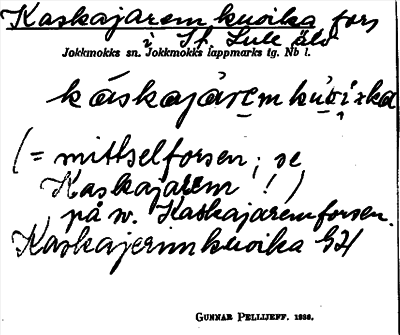 Kaskajarem kuoika fors
i St. Lule älv
Jokkmokks sn. Jokkmokks lappmarks tg. Nb l.
káskajàrem
(= mittselforsen; se
Kaskajarem!)
på w. Kaskajaremforsen.
Kaskajerimkuoika
GUNNAR PELLIJEFF. 1938.